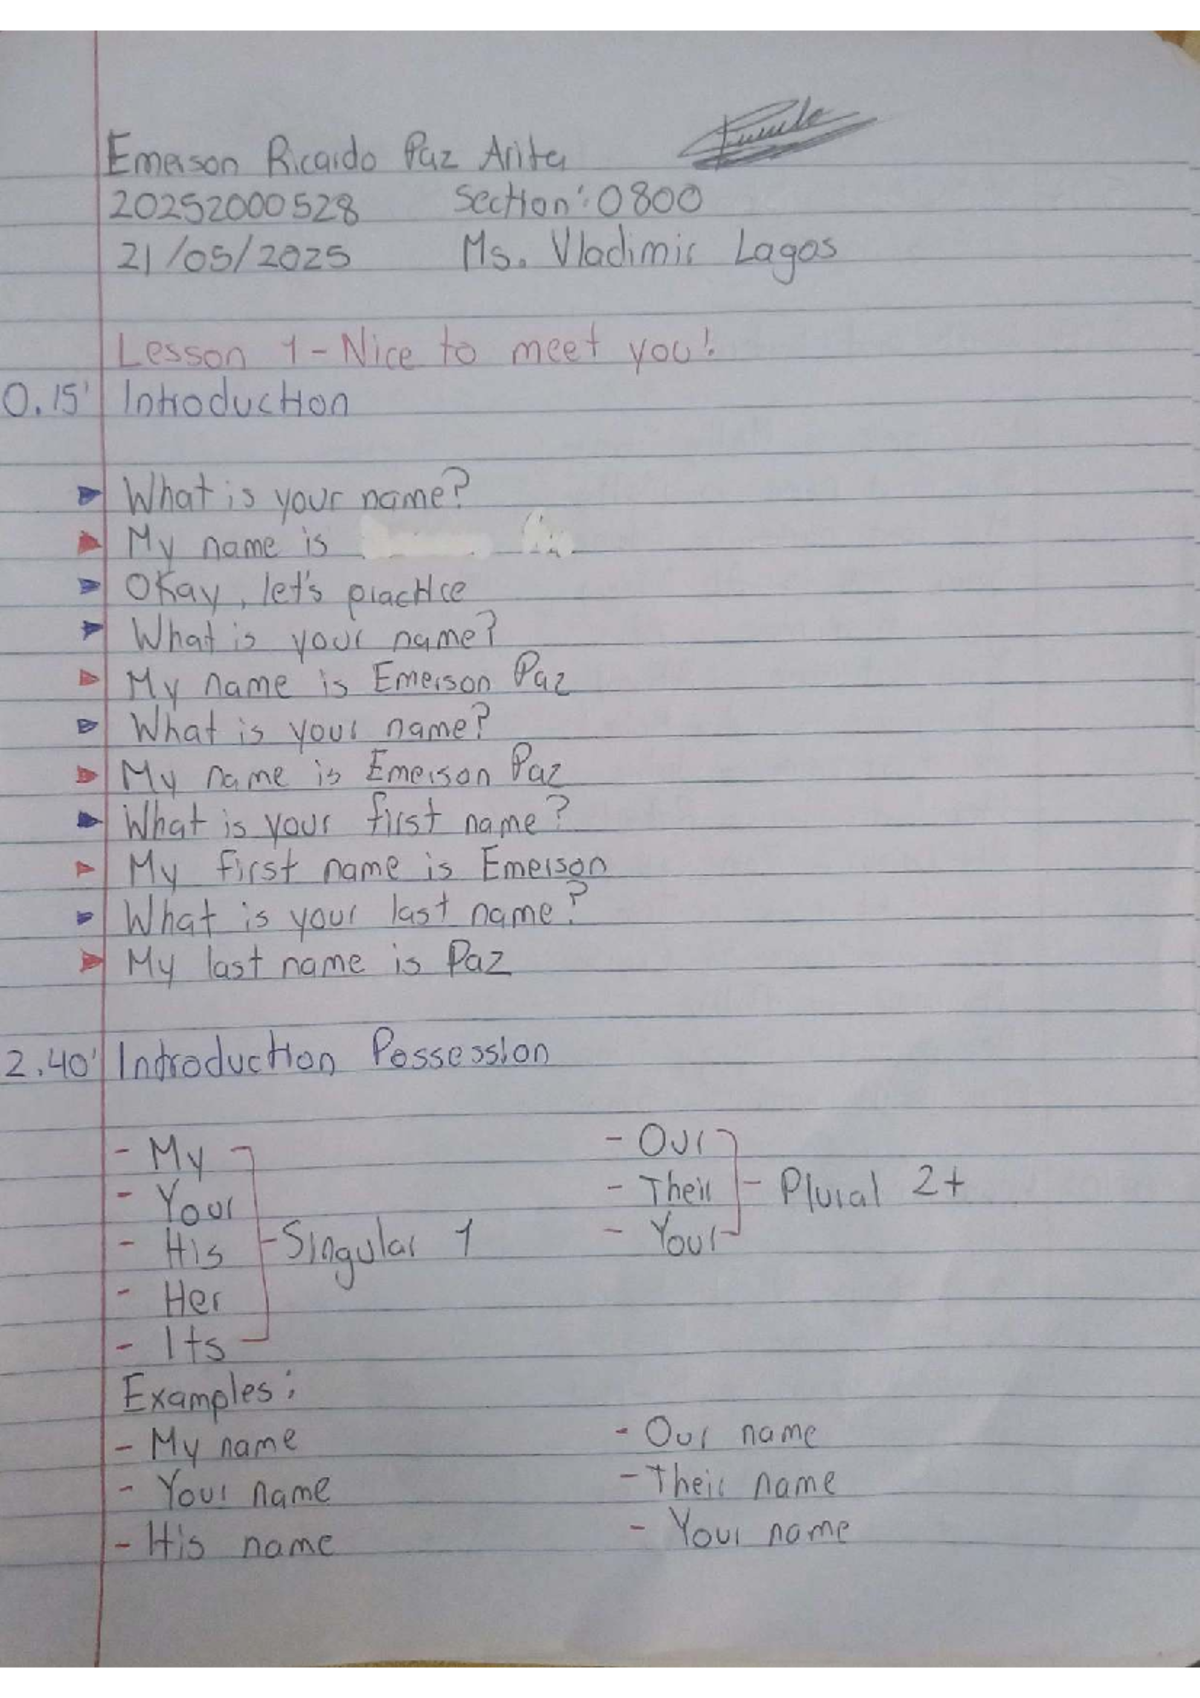 Emerson Ricardo Paz Arita
20252000528 Section: 0800
21/05/2025 Ms. Vladimir Lagos
Lesson 1 - Nice to meet you!
0.15' Introduction
What is your name?
My name is
Okay, let's practice
What is your name?
My name is Emerson Paz
What is your name?
My name is Emerson Paz
What is your first name?
My first name is Emerson
What is your last name?
My last name is Paz
2.40' Introduction Possession
- My - Our
- Your - Their - Plural 2+
- His - Singular 1 - Your
- Her
- Its
Examples:
- My name - Our name
- Your name - Their name
- His name - Your name